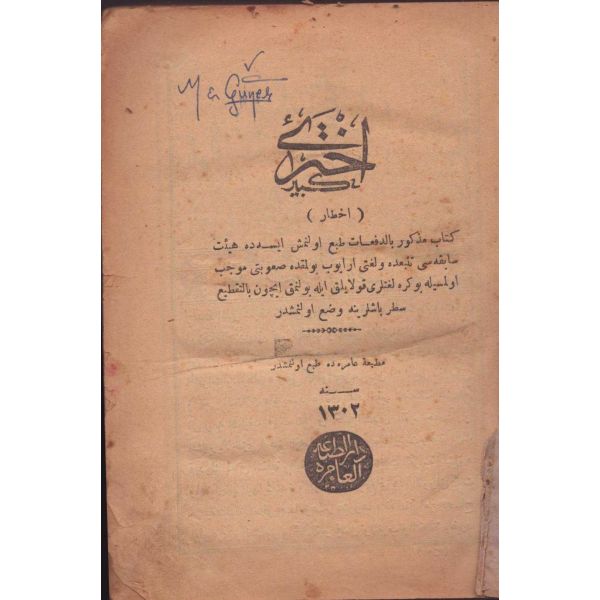 M a Güneş
اختری كبير
( اخطار )
كتاب مذكور بالدفعات طبع اولنمش ايسه ده هيئت
سابقه سی تتبعده ولغتی ارايوب بولمقده صعوبتی موجب
اولمسيله بوكره لغتلری قولايلق ايله بولنمق ايچون بالتقطيع
سطر باشلرينه وضع اولنمشدر
مطبعهٔ عامره ده طبع اولنمشدر
سنه
١٣٠٢
دار الطباعه
العامره